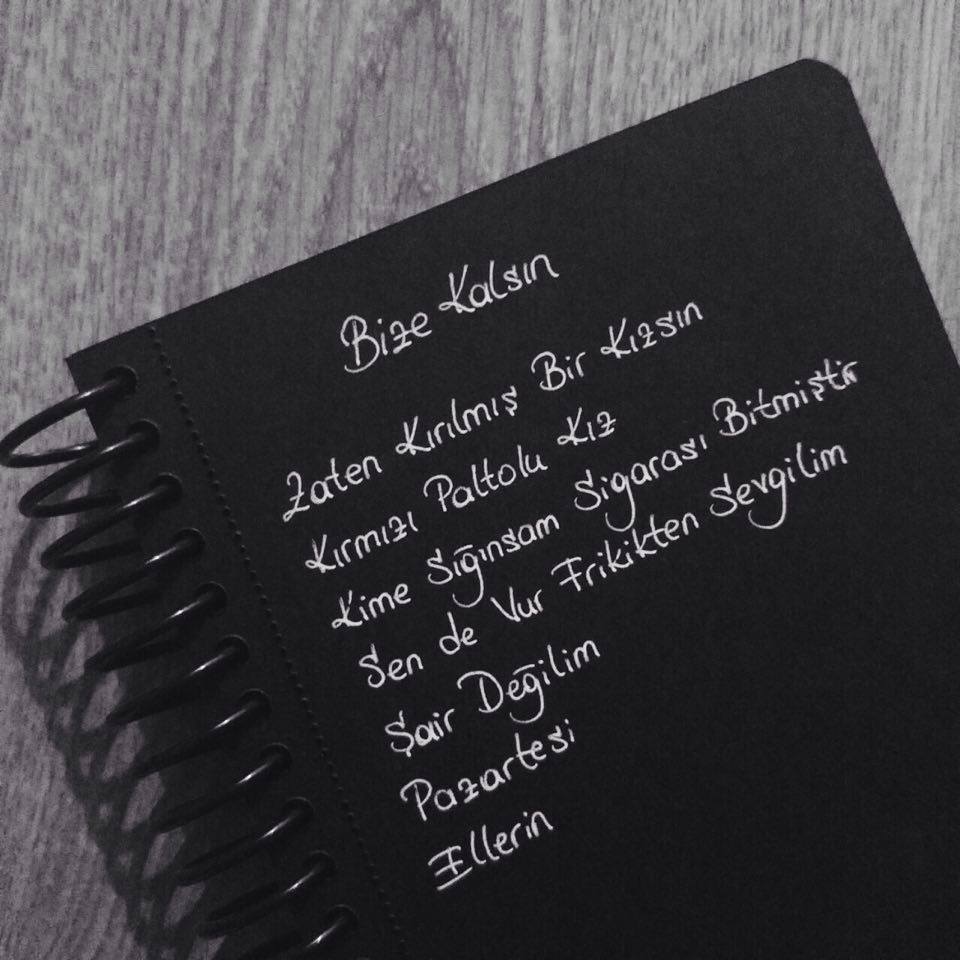 Bize Kalsın
Zaten Kırılmış Bir Kızsın
Kırmızı Paltolu Kız
Kime Sığınsam Sigarası Bitmiştir
Sen de Vur Frikikten Sevgilim
Şair Değilim
Pazartesi
Ellerin